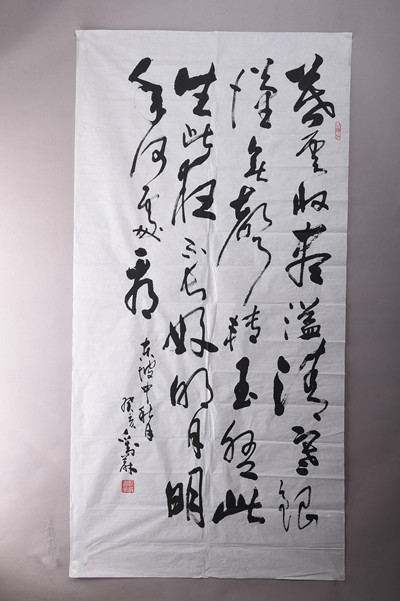 暮雲收盡溢清寒銀
漢無聲轉玉盤此
生此夜不長好明月明
年何處看
東坡中秋月
癸亥